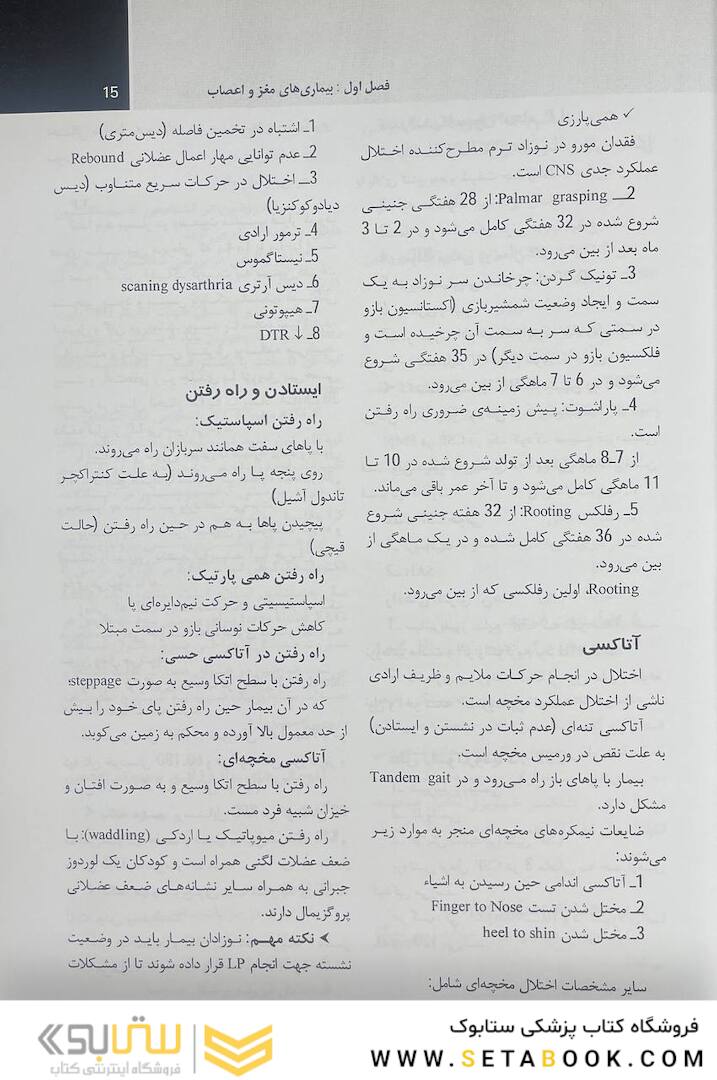 15
فصل اول : بیماری‌های مغز و اعصاب
✓ همی‌پارزی
فقدان مورو در نوزاد ترم مطرح‌کننده اختلال
عملکرد جدی CNS است.
2ـ Palmar grasping: از 28 هفتگی جنینی
شروع شده در 32 هفتگی کامل می‌شود و در 2 تا 3
ماه بعد از بین می‌رود.
3ـ تونیک گردن: چرخاندن سر نوزاد به یک
سمت و ایجاد وضعیت شمشیربازی (اکستانسیون بازو
در سمتی که سر به سمت آن چرخیده است و
فلکسیون بازو در سمت دیگر) در 35 هفتگی شروع
می‌شود و در 6 تا 7 ماهگی از بین می‌رود.
4ـ پاراشوت: پیش زمینه‌ی ضروری راه رفتن
است.
از 7ـ8 ماهگی بعد از تولد شروع شده در 10 تا
11 ماهگی کامل می‌شود و تا آخر عمر باقی می‌ماند.
5ـ رفلکس Rooting: از 32 هفته جنینی شروع
شده در 36 هفتگی کامل شده و در یک ماهگی از
بین می‌رود.
Rooting، اولین رفلکسی که از بین می‌رود.
آتاکسی
اختلال در انجام حرکات ملایم و ظریف ارادی
ناشی از اختلال عملکرد مخچه است.
آتاکسی تنه‌ای (عدم ثبات در نشستن و ایستادن)
به علت نقص در ورمیس مخچه است.
بیمار با پاهای باز راه می‌رود و در Tandem gait
مشکل دارد.
ضایعات نیمکره‌های مخچه‌ای منجر به موارد زیر
می‌شوند:
1ـ آتاکسی اندامی حین رسیدن به اشیاء
2ـ مختل شدن تست Finger to Nose
3ـ مختل شدن heel to shin
سایر مشخصات اختلال مخچه‌ای شامل:
1ـ اشتباه در تخمین فاصله (دیس‌متری)
2ـ عدم توانایی مهار اعمال عضلانی Rebound
3ـ اختلال در حرکات سریع متناوب (دیس
دیادوکوکنزیا)
4ـ ترمور ارادی
5ـ نیستاگموس
6ـ دیس آرتری scaning dysarthria
7ـ هیپوتونی
8ـ ↓ DTR
ایستادن و راه رفتن
راه رفتن اسپاستیک:
با پاهای سفت همانند سربازان راه می‌روند.
روی پنجه پا راه می‌روند (به علت کنتراکچر
تاندول آشیل)
پیچیدن پاها به هم در حین راه رفتن (حالت
قیچی)
راه رفتن همی پارتیک:
اسپاستیسیتی و حرکت نیم‌دایره‌ای پا
کاهش حرکات نوسانی بازو در سمت مبتلا
راه رفتن در آتاکسی حسی:
راه رفتن با سطح اتکا وسیع به صورت steppage؛
که در آن بیمار حین راه رفتن پای خود را بیش
از حد معمول بالا آورده و محکم به زمین می‌کوبد.
آتاکسی مخچه‌ای:
راه رفتن با سطح اتکا وسیع و به صورت افتان و
خیزان شبیه فرد مست.
راه رفتن میوپاتیک یا اردکی (waddling): با
ضعف عضلات لگنی همراه است و کودکان یک لوردوز
جبرانی به همراه سایر نشانه‌های ضعف عضلانی
پروگزیمال دارند.
➤ نکته مهم: نوزادان بیمار باید در وضعیت
نشسته جهت انجام LP قرار داده شوند تا از مشکلات
فروشگاه کتاب پزشکی ستابوک
WWW.SETABOOK.COM
ستابوک
فروشگاه اینترنتی کتاب